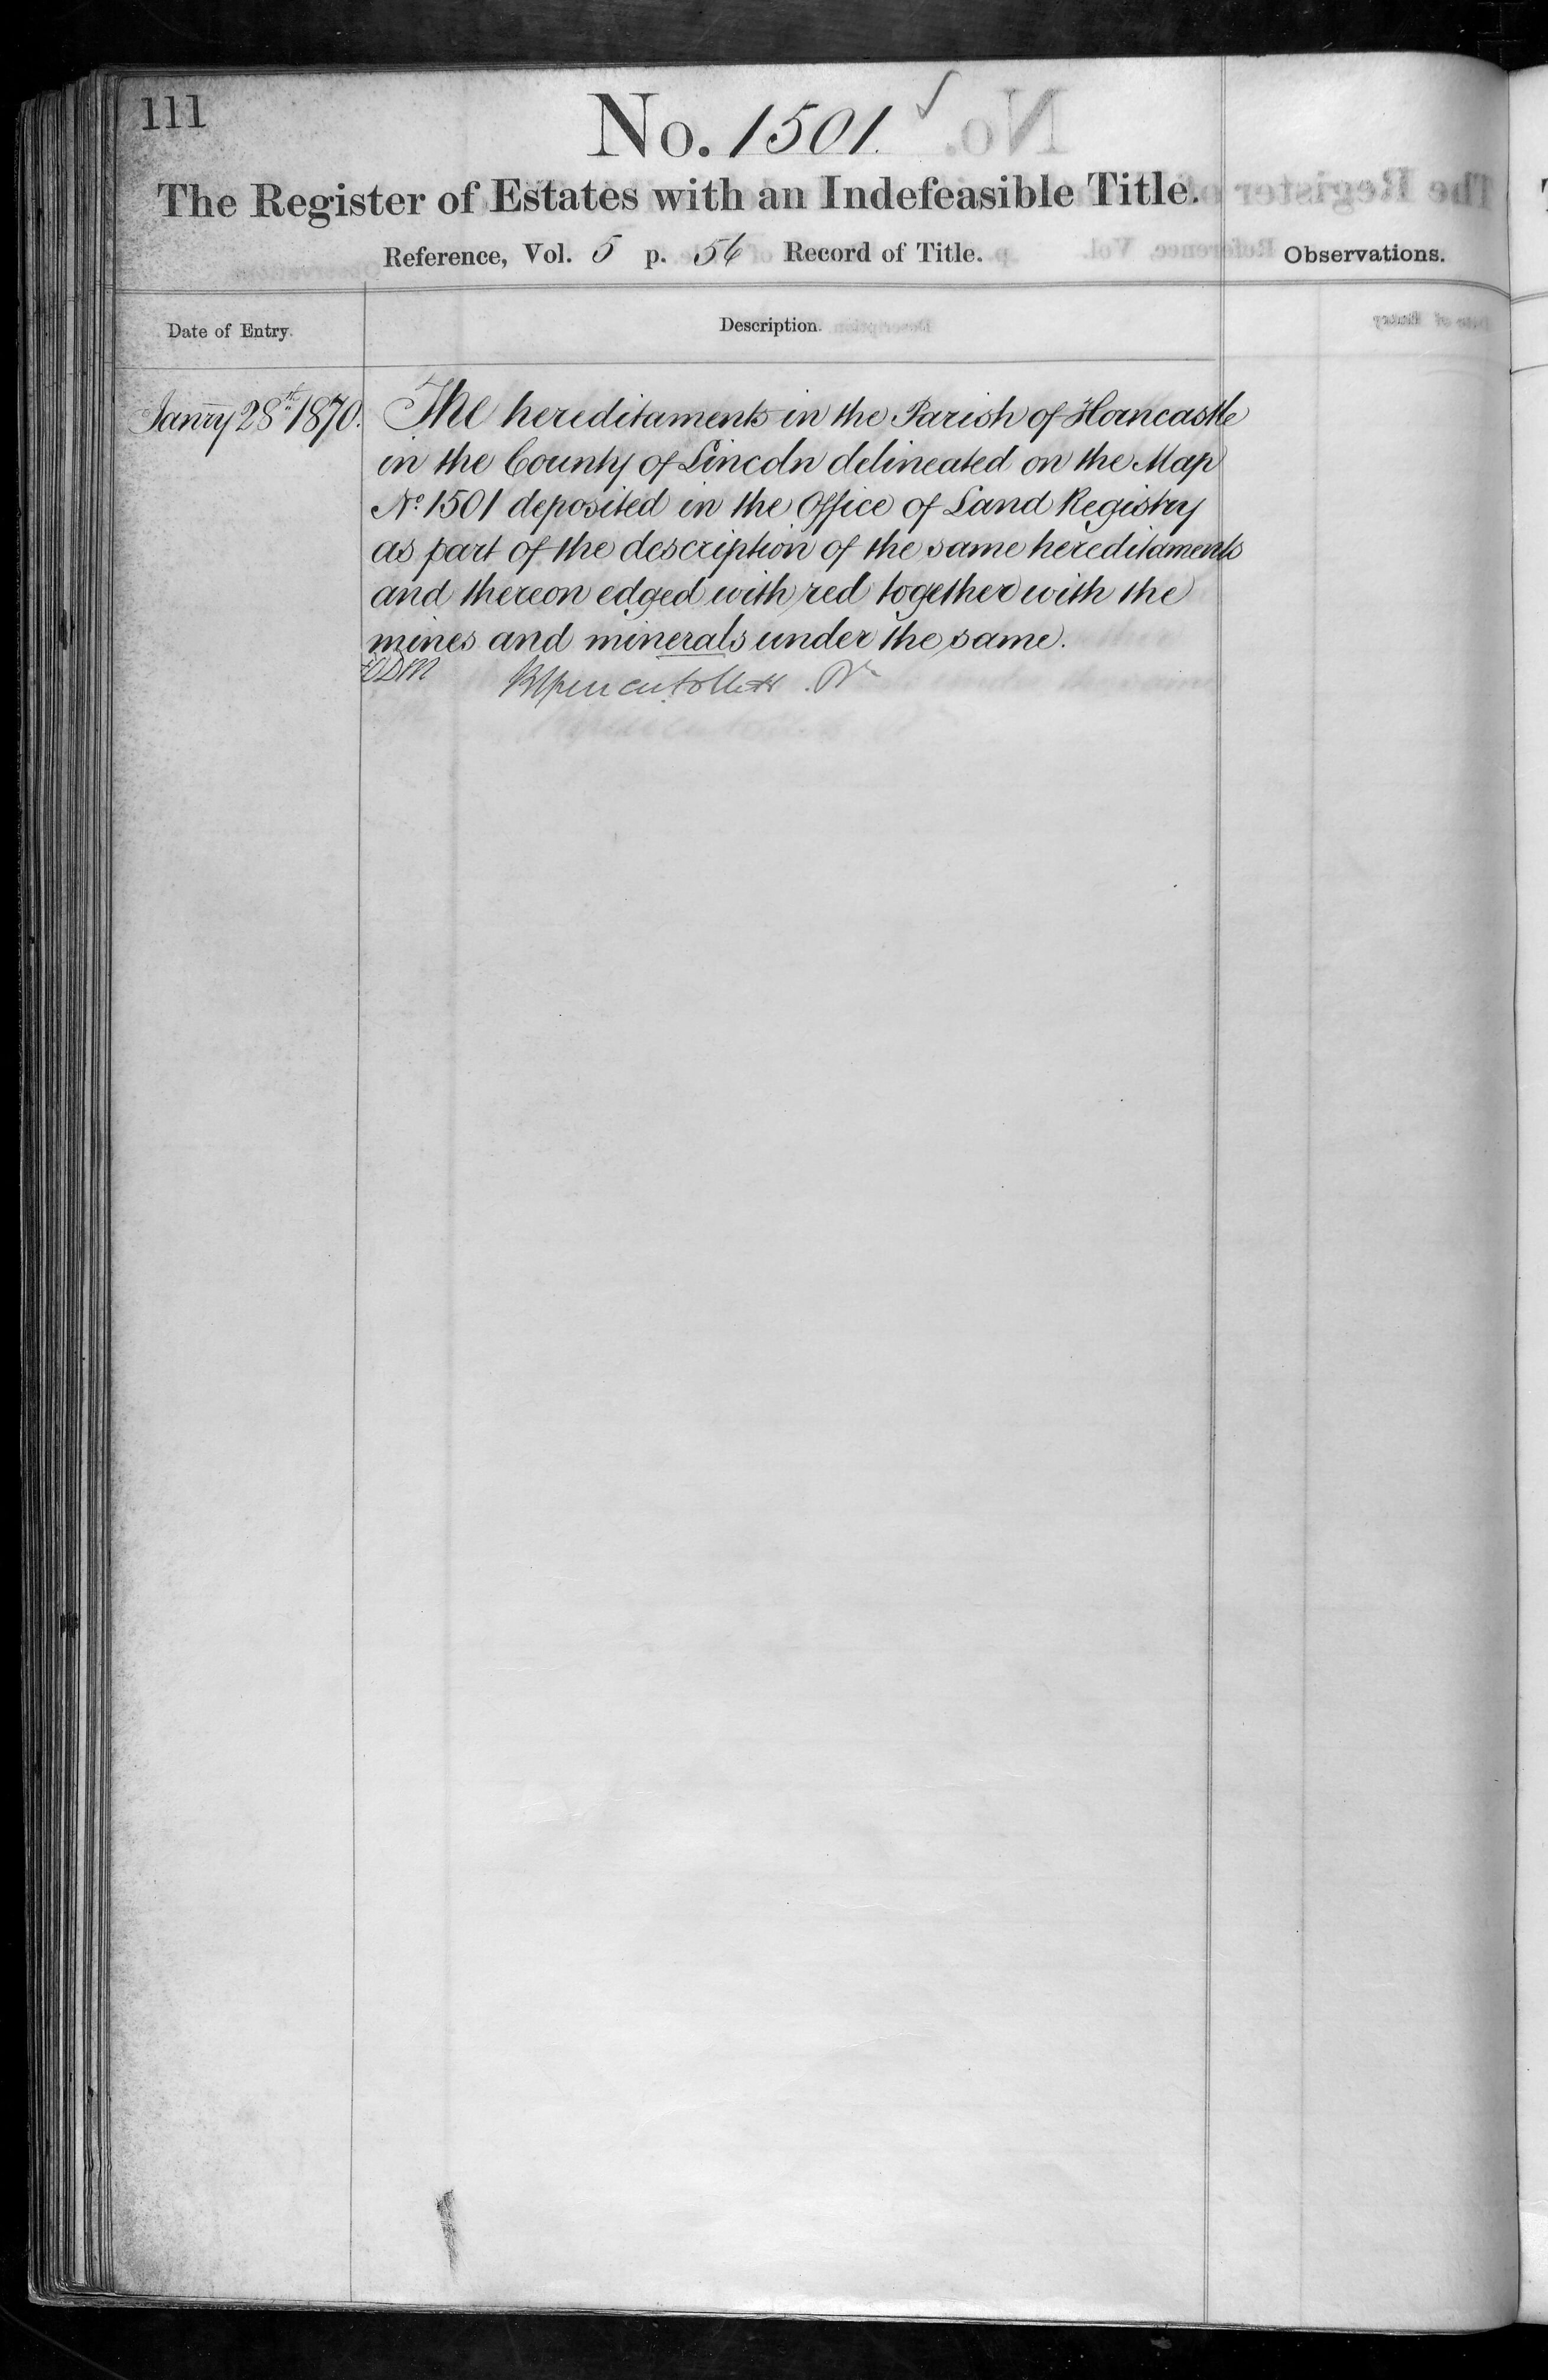 111
No. 1501.
The Register of Estates with an Indefeasible Title.
Reference, Vol. 5 p. 56 Record of Title.
Observations.
Date of Entry.
Description.
Janry 28th 1870.
The hereditaments in the Parish of Horncastle
in the County of Lincoln delineated on the Map
No. 1501 deposited in the Office of Land Registry
as part of the description of the same hereditaments
and thereon edged with red together with the
mines and minerals under the same.